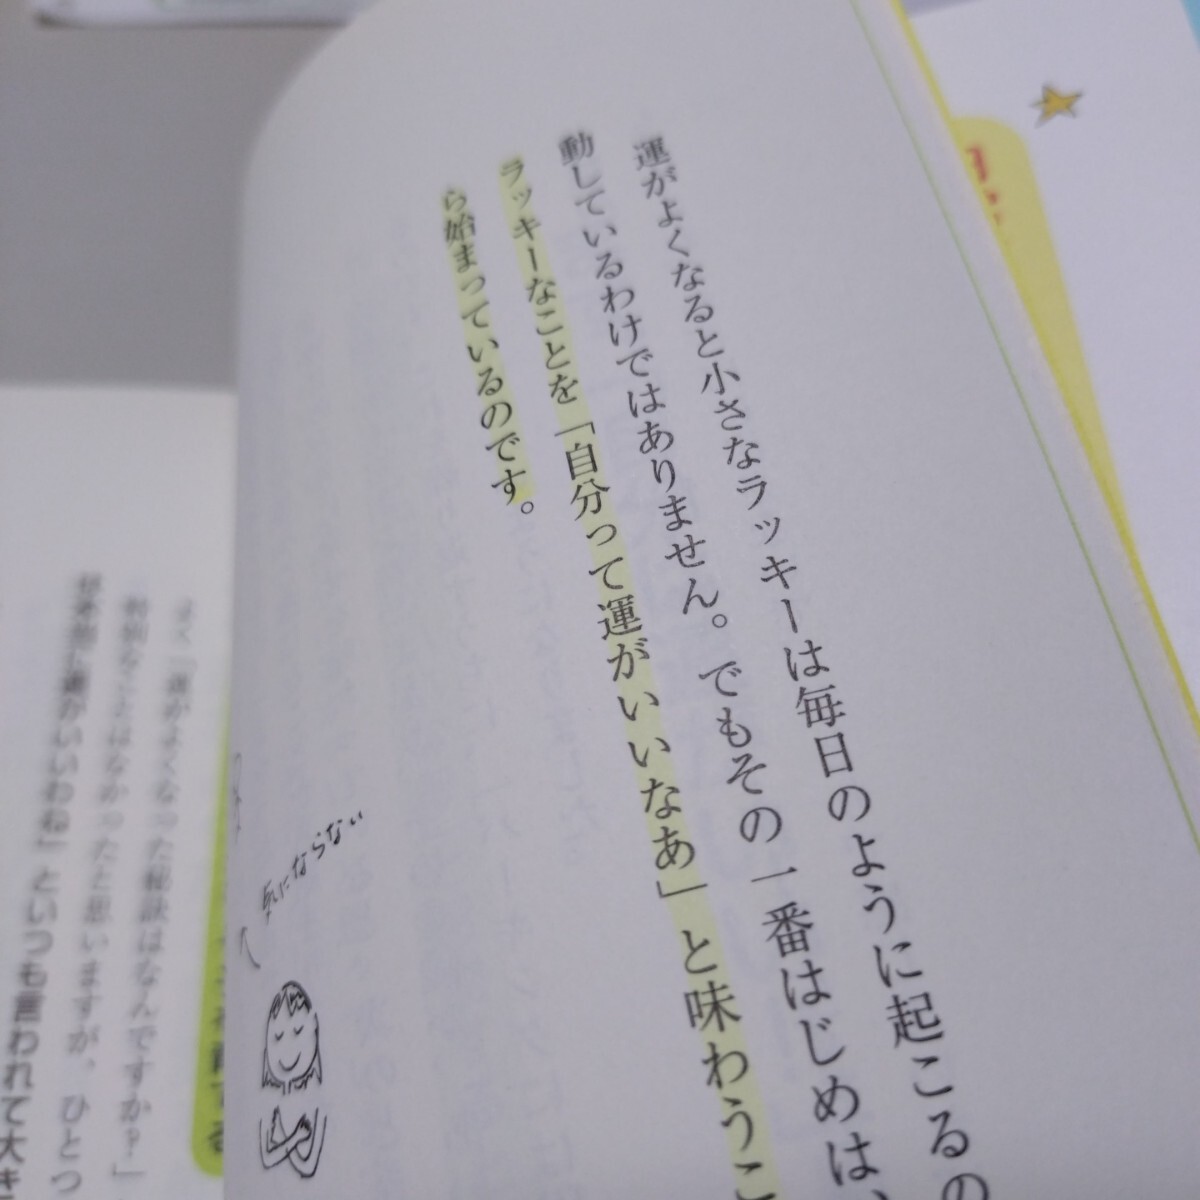 運がよくなると小さなラッキーは毎日のように起こるの
動しているわけではありません。でもその一番はじめは、
ラッキーなことを「自分って運がいいなあ」と味わうこ
ら始まっているのです。
気にならない
よく「運がよくなった秘訣はなんですか？」
特別なことはなかったと思いますが、ひとつ
運がいいわね」といつも言われて大き